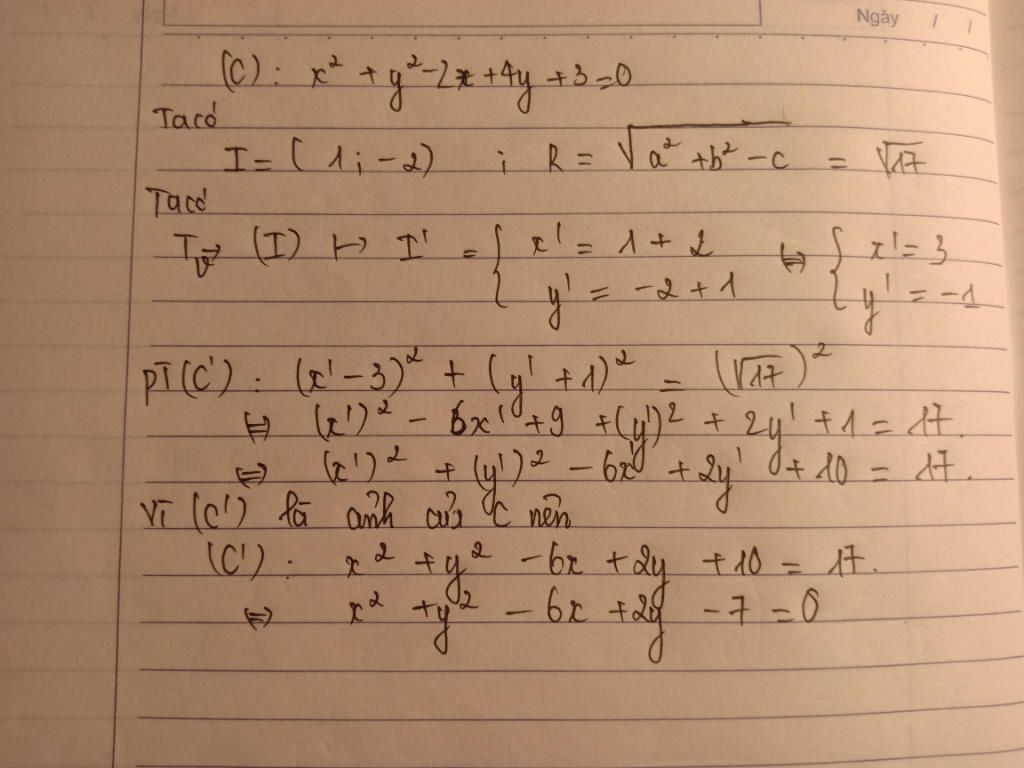 Ngày / /
(C): x² + y² - 2x + 4y + 3 = 0
Ta có
I = (1; -2) ; R = √(a² + b² - c) = √17
Ta có
T_v⃗ (I) ↦ I' = { x' = 1 + 2 ⇔ { x' = 3
y' = -2 + 1 y' = -1
PT (C'): (x' - 3)² + (y' + 1)² = (√17)²
⇔ (x')² - 6x' + 9 + (y')² + 2y' + 1 = 17.
⇔ (x')² + (y')² - 6x' + 2y' + 10 = 17.
Vì (C') là ảnh của C nên
(C'): x² + y² - 6x + 2y + 10 = 17.
⇔ x² + y² - 6x + 2y - 7 = 0